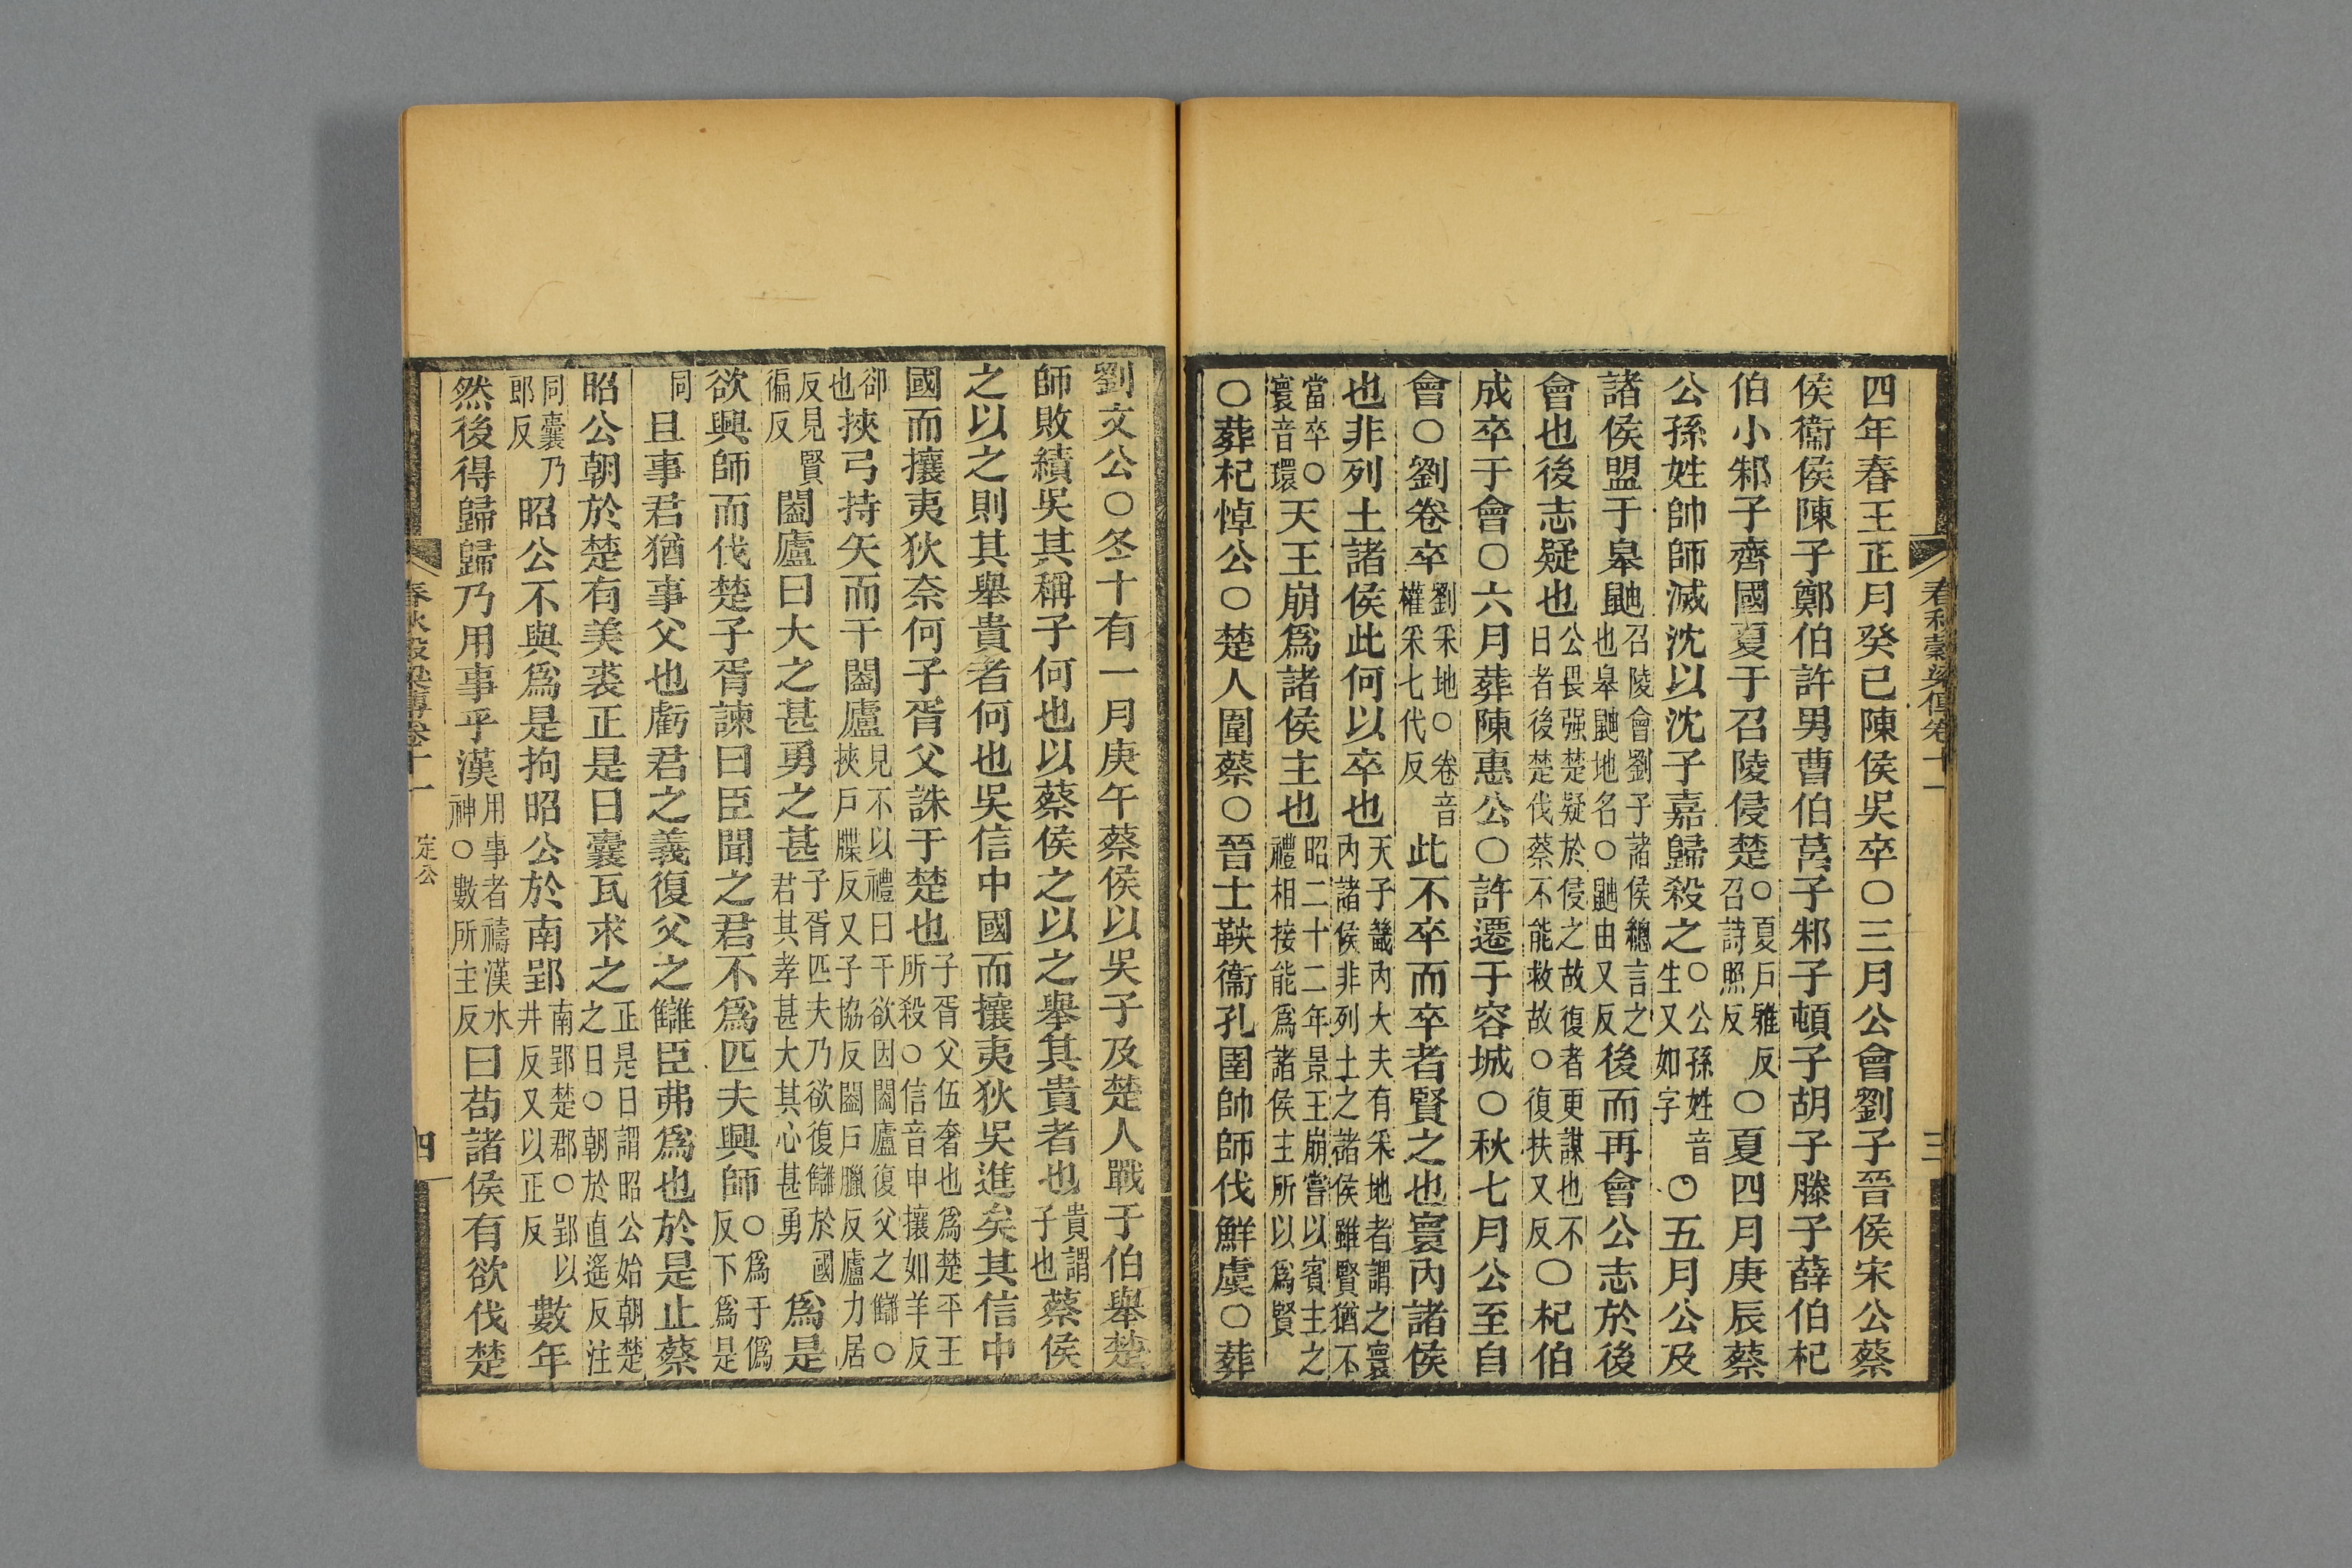 春秋穀梁傳卷十一 三
四年春王正月癸巳陳侯吳卒○三月公會劉子晉侯宋公蔡
侯衞侯陳子鄭伯許男曹伯莒子邾子頓子胡子滕子薛伯杞
伯小邾子齊國夏于召陵侵楚○夏戸雅反召詩照反○夏四月庚辰蔡
公孫姓帥師滅沈以沈子嘉歸殺之○公孫姓音生又如字○五月公及
諸侯盟于皋鼬召陵會劉子諸侯總言之也皋鼬地名○鼬由又反後而再會公志於後
會也後志疑也公畏强楚疑於侵之故復者更謀也不日者後楚伐蔡不能救故○復扶又反○杞伯
成卒于會○六月葬陳惠公○許遷于容城○秋七月公至自
會○劉卷卒劉采地○卷音權采七代反此不卒而卒者賢之也寰內諸侯
也非列土諸侯此何以卒也天子畿內大夫有采地者謂之寰內諸侯非列土之諸侯雖賢猶不
當卒○寰音環天王崩爲諸侯主也昭二十二年景王崩嘗以賓主之禮相接能爲諸侯主所以爲賢
○葬杞悼公○楚人圍蔡○晉士鞅衞孔圉帥師伐鮮虞○葬
劉文公○冬十有一月庚午蔡侯以吳子及楚人戰于伯舉楚
師敗績吳其稱子何也以蔡侯之以之舉其貴者也貴謂子也蔡侯
之以之則其舉貴者何也吳信中國而攘夷狄吳進矣其信中
國而攘夷狄奈何子胥父誅于楚也子胥父伍奢也爲楚平王所殺○信音申攘如羊反
卻也挾弓持矢而干闔廬見不以禮曰干欲因闔廬復父之讎○挾戸牒反又子協反闔戸臘反廬力居
反見賢徧反闔廬曰大之甚勇之甚子胥匹夫乃欲復讎於國君其孝甚大其心甚勇爲是
欲興師而伐楚子胥諫曰臣聞之君不爲匹夫興師○爲于僞反下爲是
同且事君猶事父也虧君之義復父之讎臣弗爲也於是止蔡
昭公朝於楚有美裘正是日囊瓦求之正是日謂昭公始朝楚之日○朝於直遙反注
同囊乃郎反昭公不與爲是拘昭公於南郢南郢楚郡○郢以井反又以正反數年
然後得歸歸乃用事乎漢用事者禱漢水神○數所主反曰苟諸侯有欲伐楚
春秋穀梁傳卷十一 定公 四